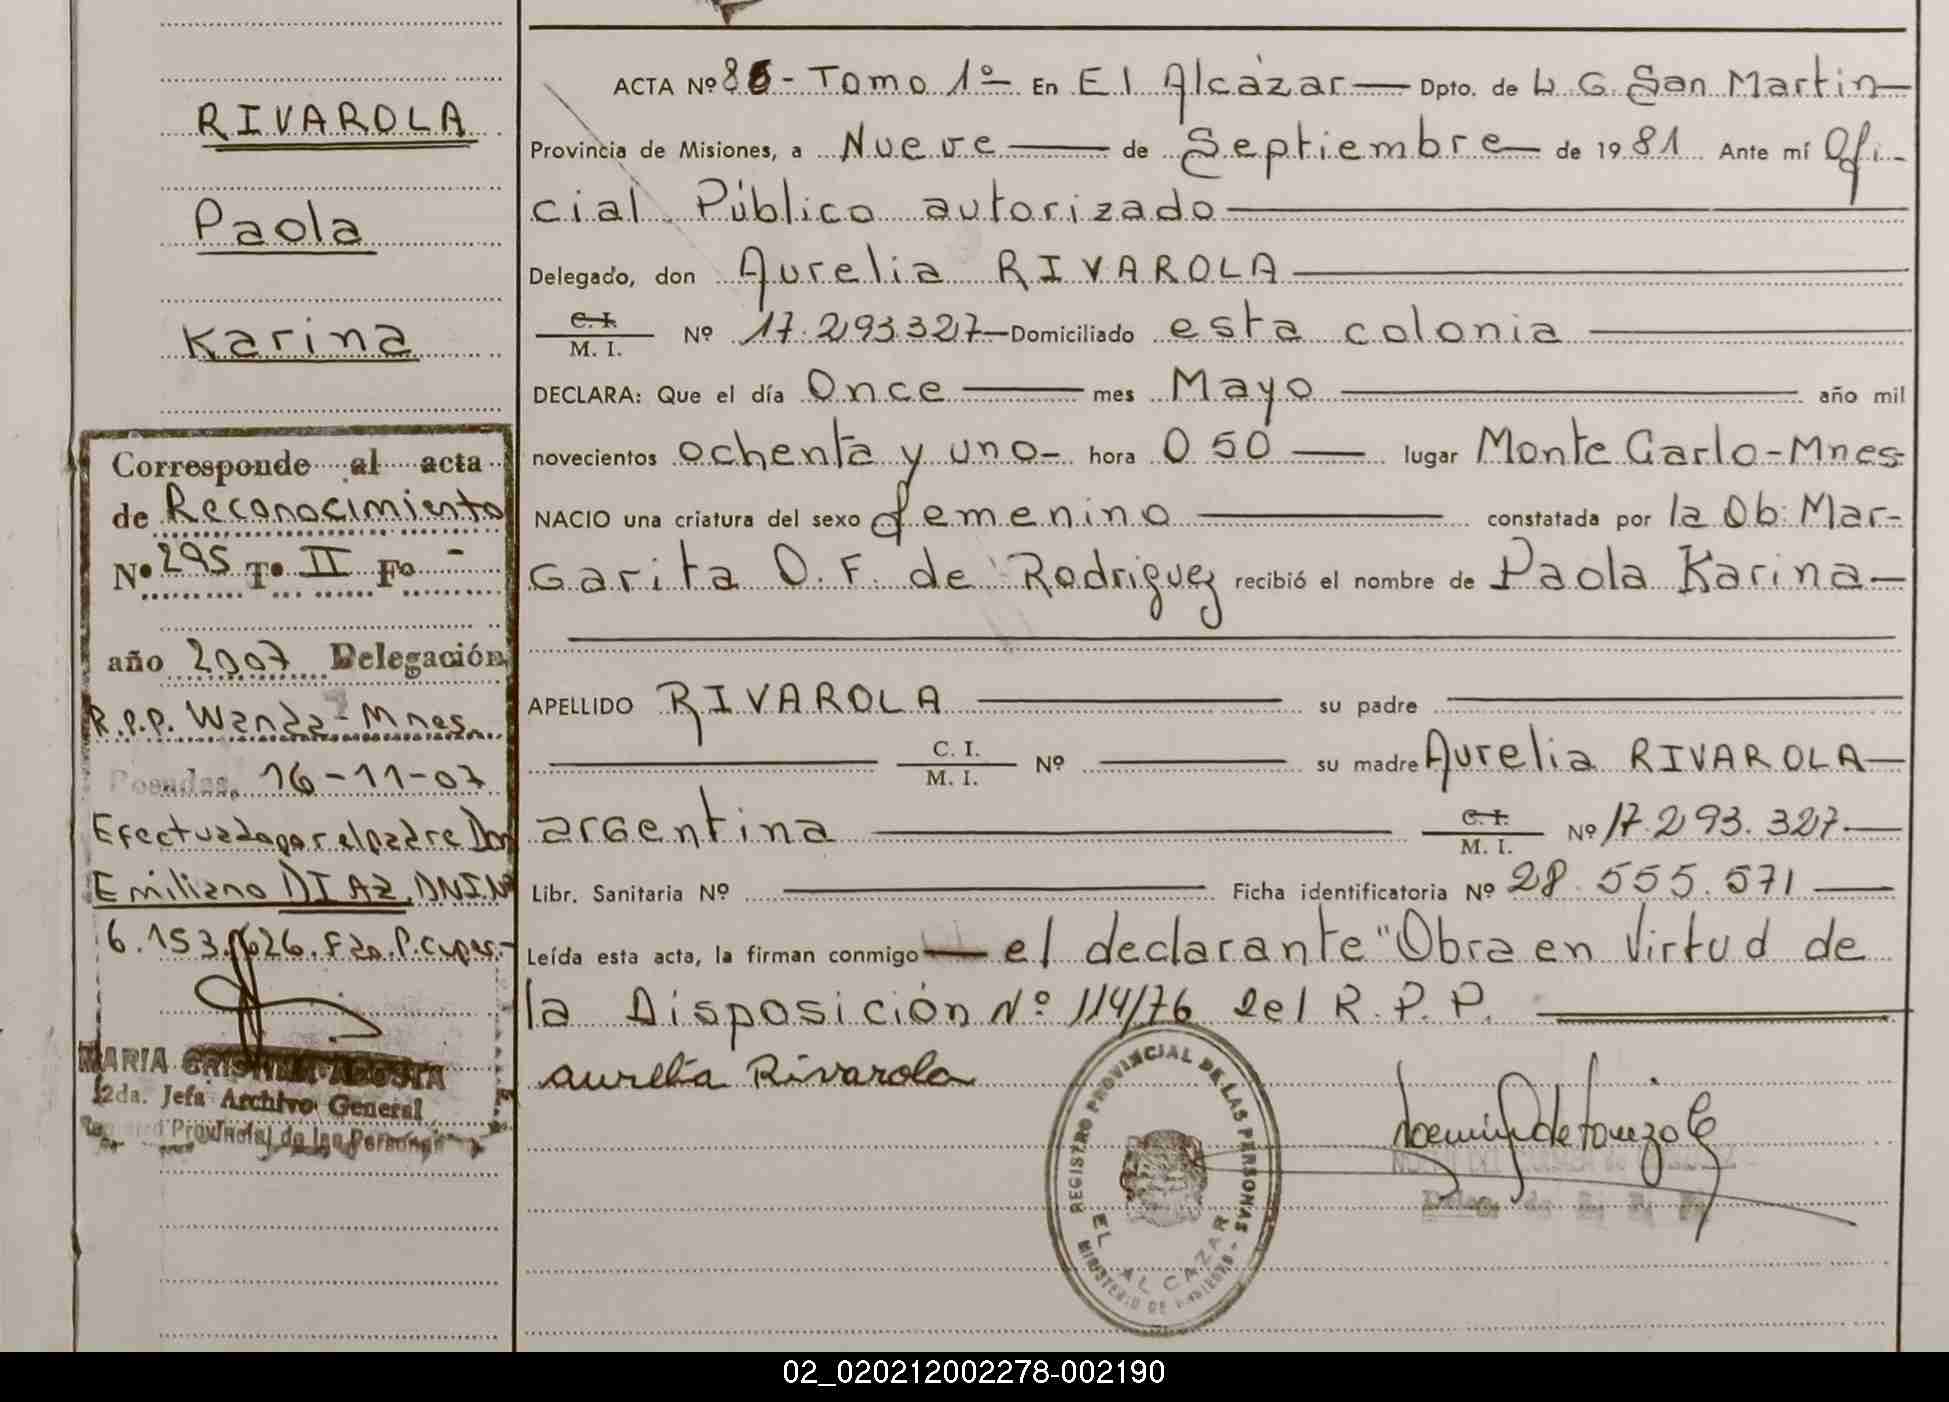 RIVAROLA
Paola
Karina
Corresponde al acta
de Reconocimiento
Nº 295 Tº II Fº -
año 2007 Delegación
R.P.P. Wanda - Mnes.
Posadas, 16-11-07
Efectuada por el padre Don
Emiliano DIAZ, DNI.Nº
6.153.626. Fdo. P.
MARIA CRISTINA ACOSTA
2da. Jefa Archivo General
Provincial de las Personas
ACTA Nº 86 - Tomo 1º En El Alcázar — Dpto. de L. G. San Martin —
Provincia de Misiones, a Nueve — de Septiembre — de 1981 Ante mí Ofi-
cial Público autorizado —
Delegado, don Aurelia RIVAROLA —
C. I. / M. I. Nº 17.293.327 — Domiciliado esta colonia —
DECLARA: Que el día Once — mes Mayo — año mil
novecientos ochenta y uno - hora 0 50 — lugar Monte Carlo - Mnes
NACIO una criatura del sexo femenino — constatada por la Ob. Mar-
garita O. F. de Rodriguez recibió el nombre de Paola Karina —
APELLIDO RIVAROLA — su padre —
— C. I. / M. I. Nº — su madre Aurelia RIVAROLA —
argentina — C. I. / M. I. Nº 17.293.327 —
Libr. Sanitaria Nº — Ficha identificatoria Nº 28.555.571 —
Leída esta acta, la firman conmigo — el declarante "Obra en Virtud de
la Disposición Nº 114/76 del R. P. P. —
aurelia Rivarola
REGISTRO PROVINCIAL DE LAS PERSONAS
EL ALCAZAR
MINISTERIO DE
02_020212002278-002190